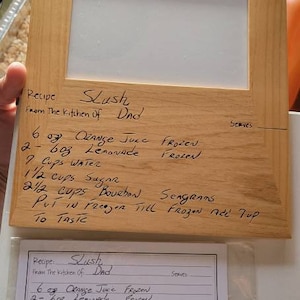 Recipe: Slush
From The Kitchen Of Dad
Serves:
6 oz Orange Juice Frozen
2 - 6oz Lemonade Frozen
7 Cups Water
1 1/2 Cups Sugar
2 1/2 Cups Bourbon Seagrams
Put in Freezer Till Frozen Add 7up
To Taste
Recipe: Slush
From The Kitchen Of Dad
Serves
6 oz Orange Juice Frozen
2 - 6oz Lemonade Frozen